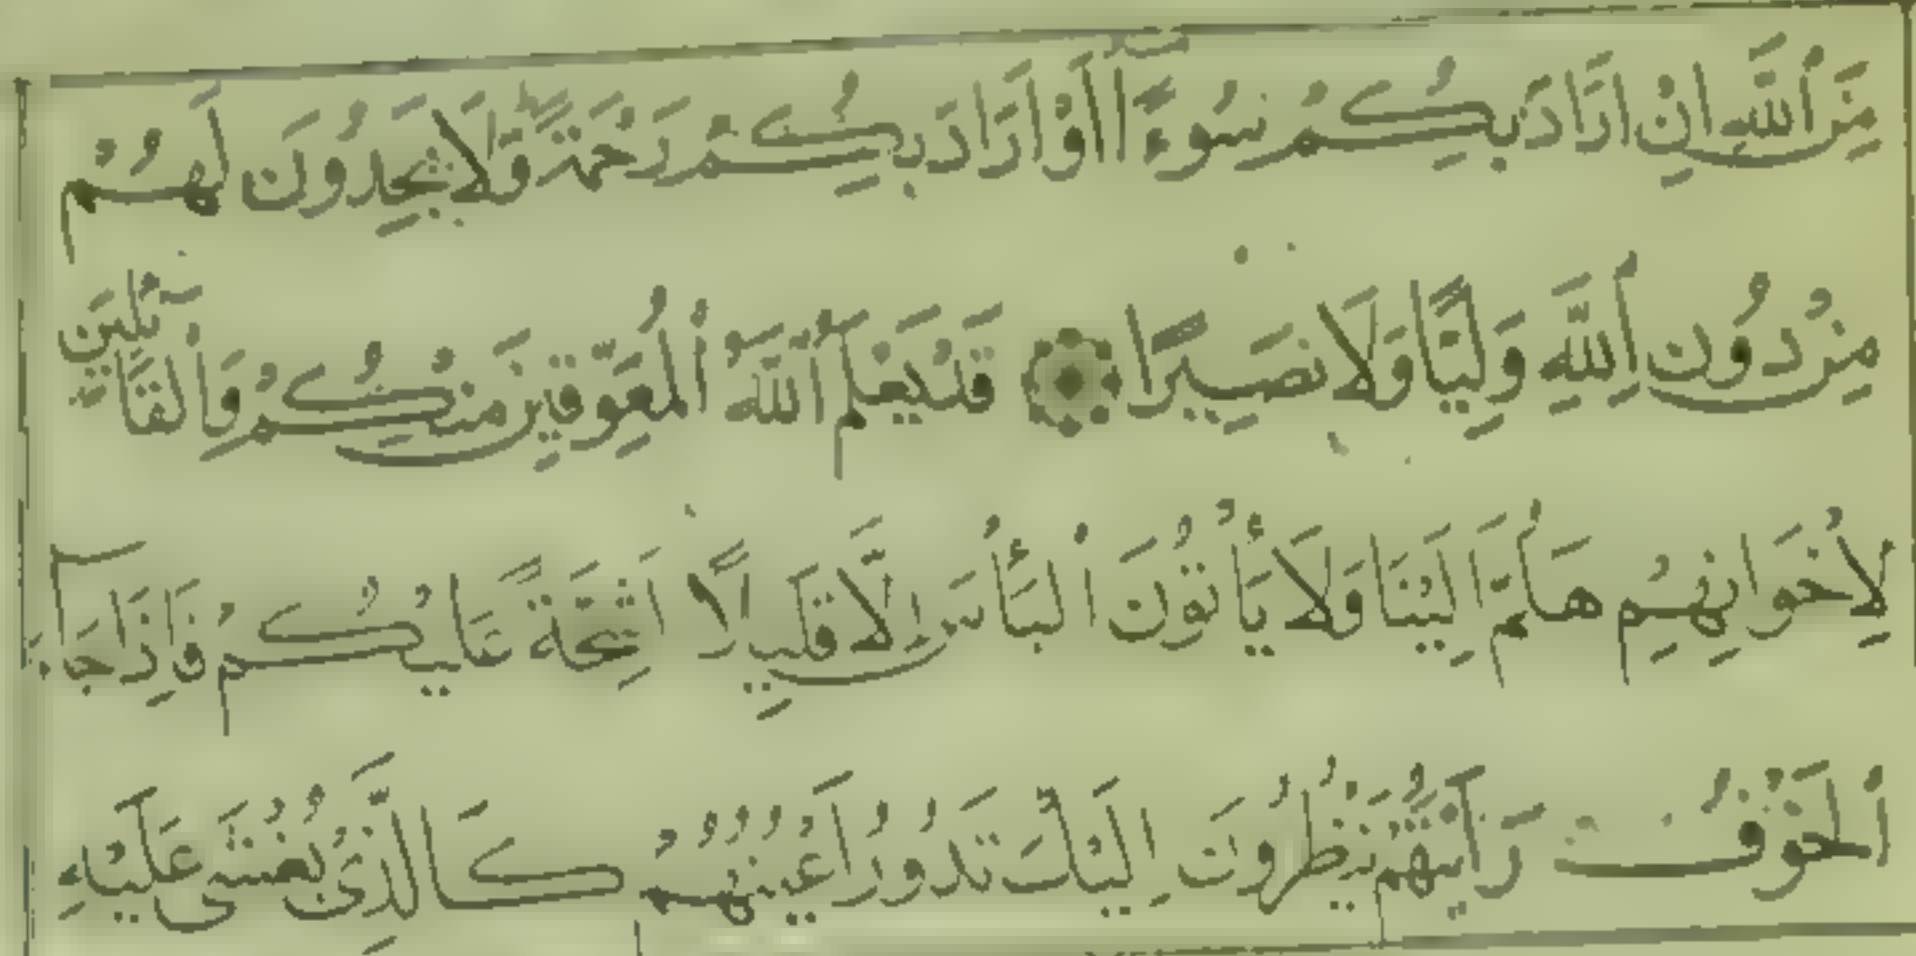 مِنَ ٱللَّهِ اِنْ اَرَادَ بِكُمْ سُوءًٓا اَوْ اَرَادَ بِكُمْ رَحْمَةً وَلَا يَجِدُونَ لَهُمْ
مِنْ دُونِ ٱللَّهِ وَلِيًّا وَلَا نَصِيرًا ۞ قَدْ يَعْلَمُ ٱللَّهُ ٱلْمُعَوِّقِينَ مِنْكُمْ وَٱلْقَٓائِلِينَ
لِاِخْوَانِهِمْ هَلُمَّ اِلَيْنَا وَلَا يَأْتُونَ ٱلْبَأْسَ اِلَّا قَلِيلًا اَشِحَّةً عَلَيْكُمْ فَاِذَا جَٓاءَ
ٱلْخَوْفُ رَاَيْتَهُمْ يَنْظُرُونَ اِلَيْكَ تَدُورُ اَعْيُنُهُمْ كَالَّذِى يُغْشَى عَلَيْهِ